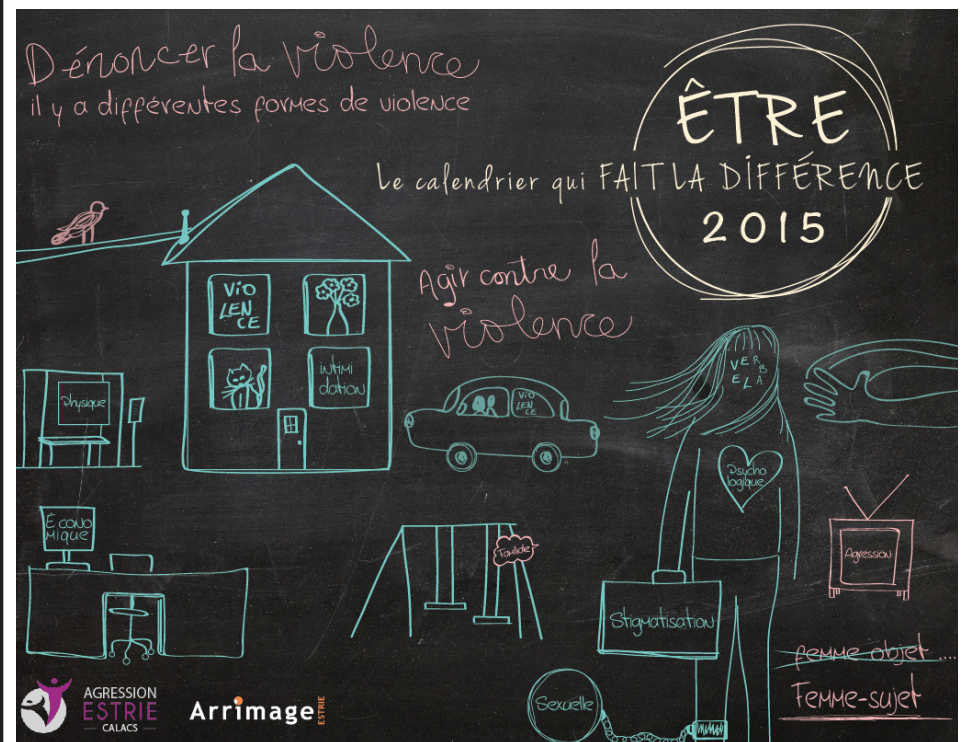 Dénoncer la violence
il y a différentes formes de violence
ÊTRE
Le calendrier qui FAIT LA DIFFÉRENCE
2015
Agir contre la
violence
VIO
LEN
CE
INTIMI
DATION
Physique
VIO
LEN
CE
VER
BA
ELA
Psycho
logique
ÉCONO
MIQUE
Familiale
Agression
Stigmatisation
femme objet ....
Femme-sujet
Sexuelle
AGRESSION
ESTRIE
CALACS
Arrimage
ESTRIE